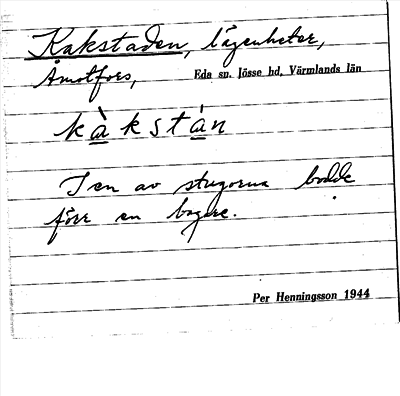 Kakstaden, lägenheter,
Åmotfors, Eda sn. Jösse hd, Värmlands län
kàkstán
I en av stugorna bodde
förr en bagare.
Per Henningsson 1944